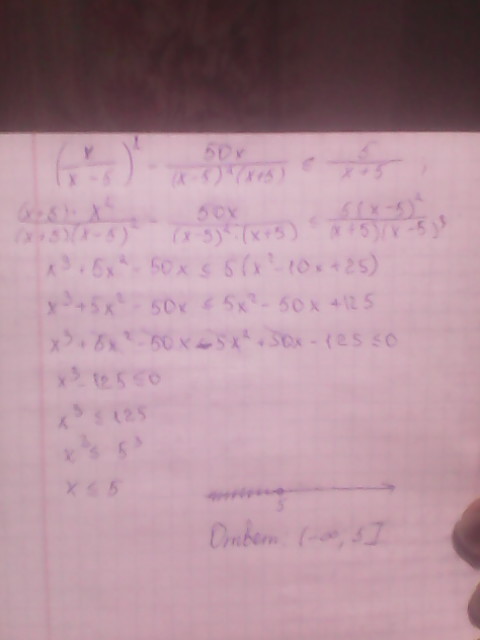 (x/(x-5))² - 50x/((x-5)²(x+5)) ≤ 5/(x+5),
(x+5)·x²/((x+5)(x-5)²) - 50x/((x-5)²·(x+5)) ≤ 5(x-5)²/((x+5)(x-5)²)
x³+5x²-50x ≤ 5(x²-10x+25)
x³+5x²-50x ≤ 5x²-50x+125
x³+5x²-50x-5x²+50x-125≤0
x³-125≤0
x³≤125
x³≤ 5³
x ≤ 5
5
Ответ: (-∞, 5]